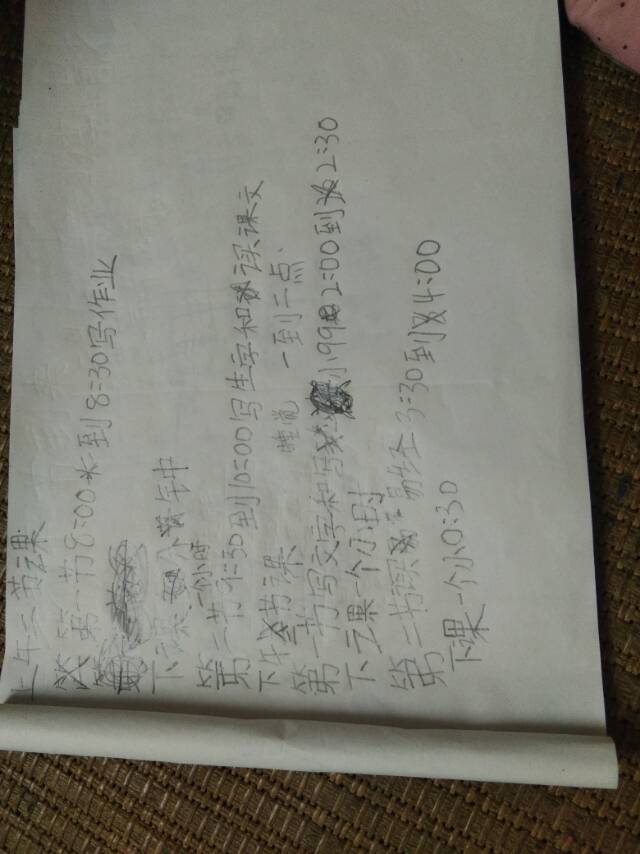 上午二节课
第一节8:00到8:30写作业
下课 分钟
一小时
第二节9:30到10:00写生字和读课文
睡觉 一到二点
下午 节课
第一节写文字和写 小99 2:00到2:30
下课一个小时
第二节读易经3:30到4:00
下课一个小0:30